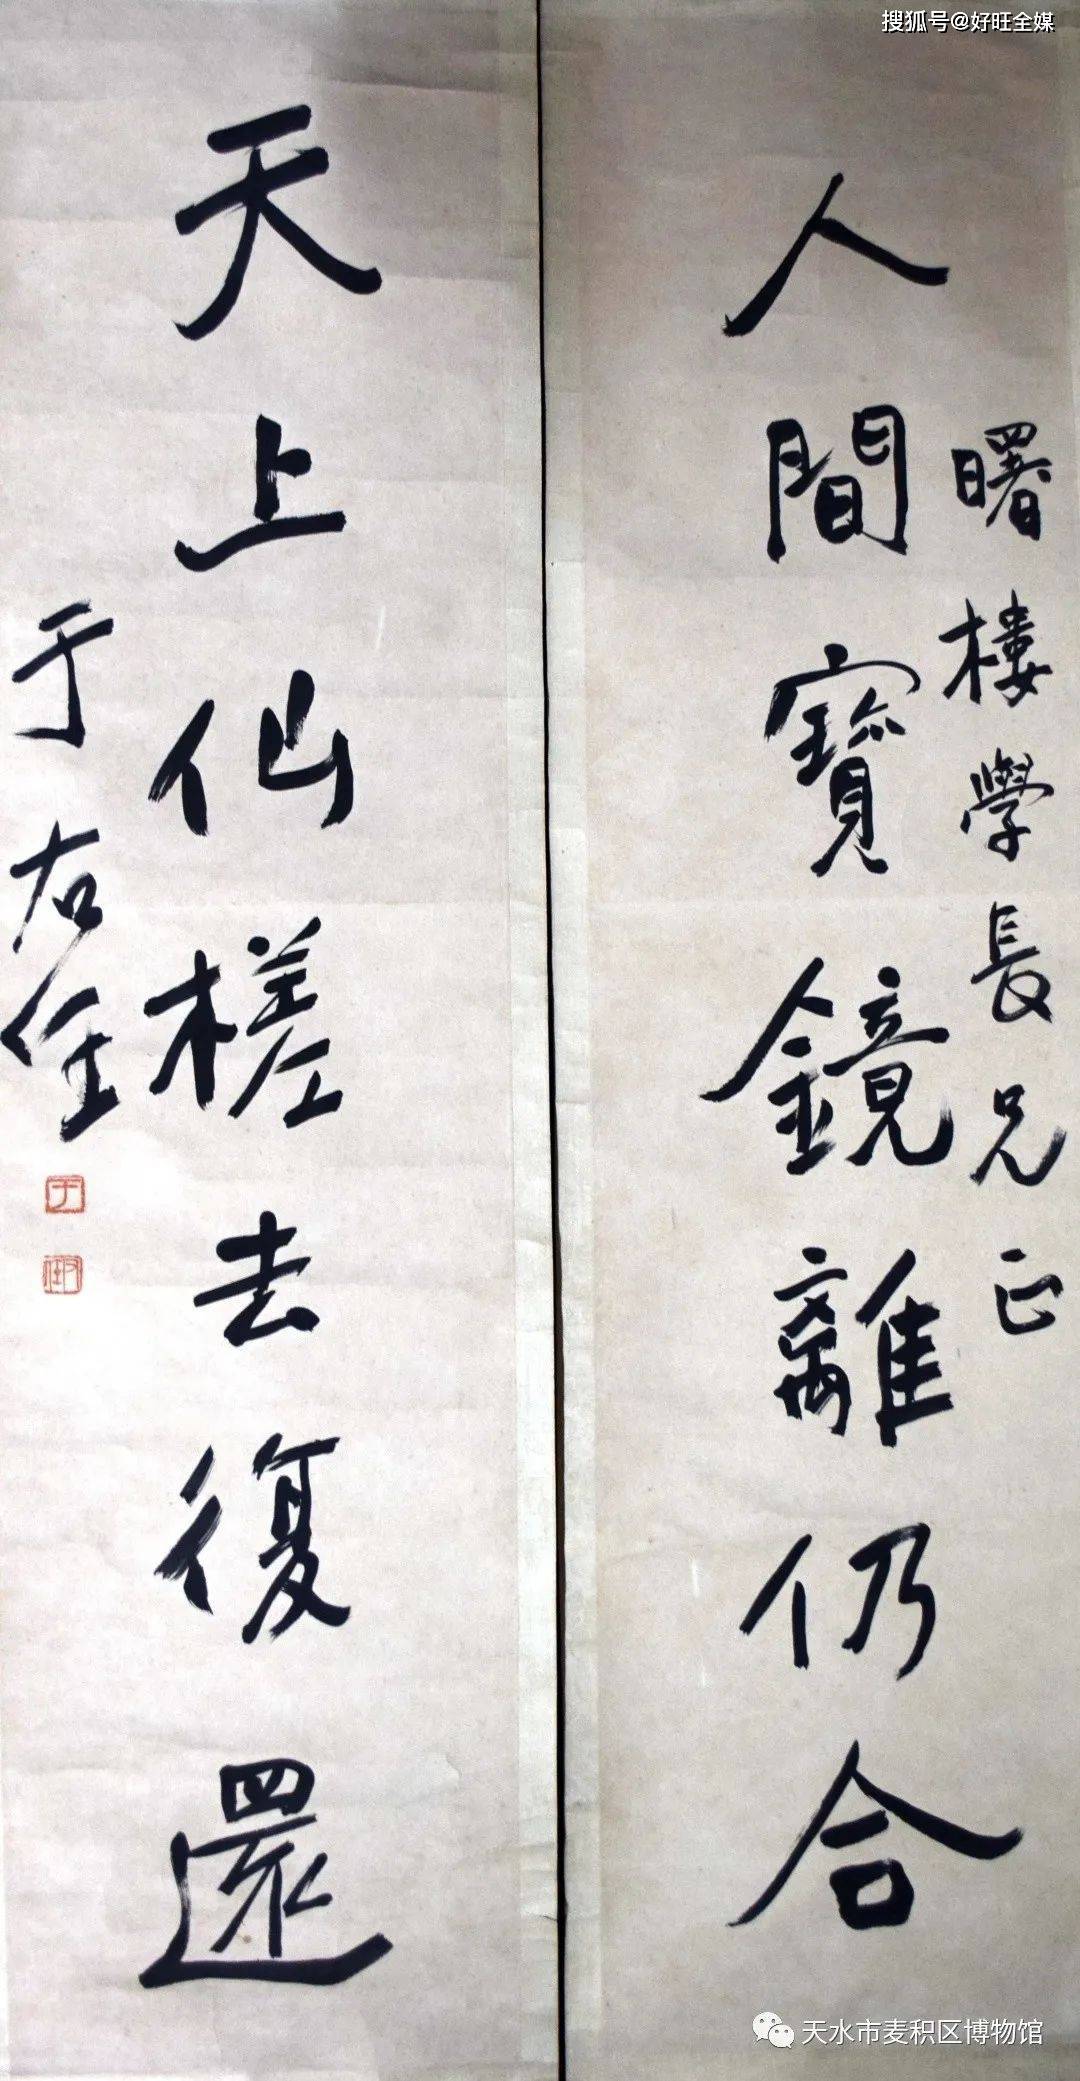 搜狐号@好旺全媒
曙樓學長兄正
人間寶鏡離仍合
天上仙槎去復還
于右任
天水市麦积区博物馆